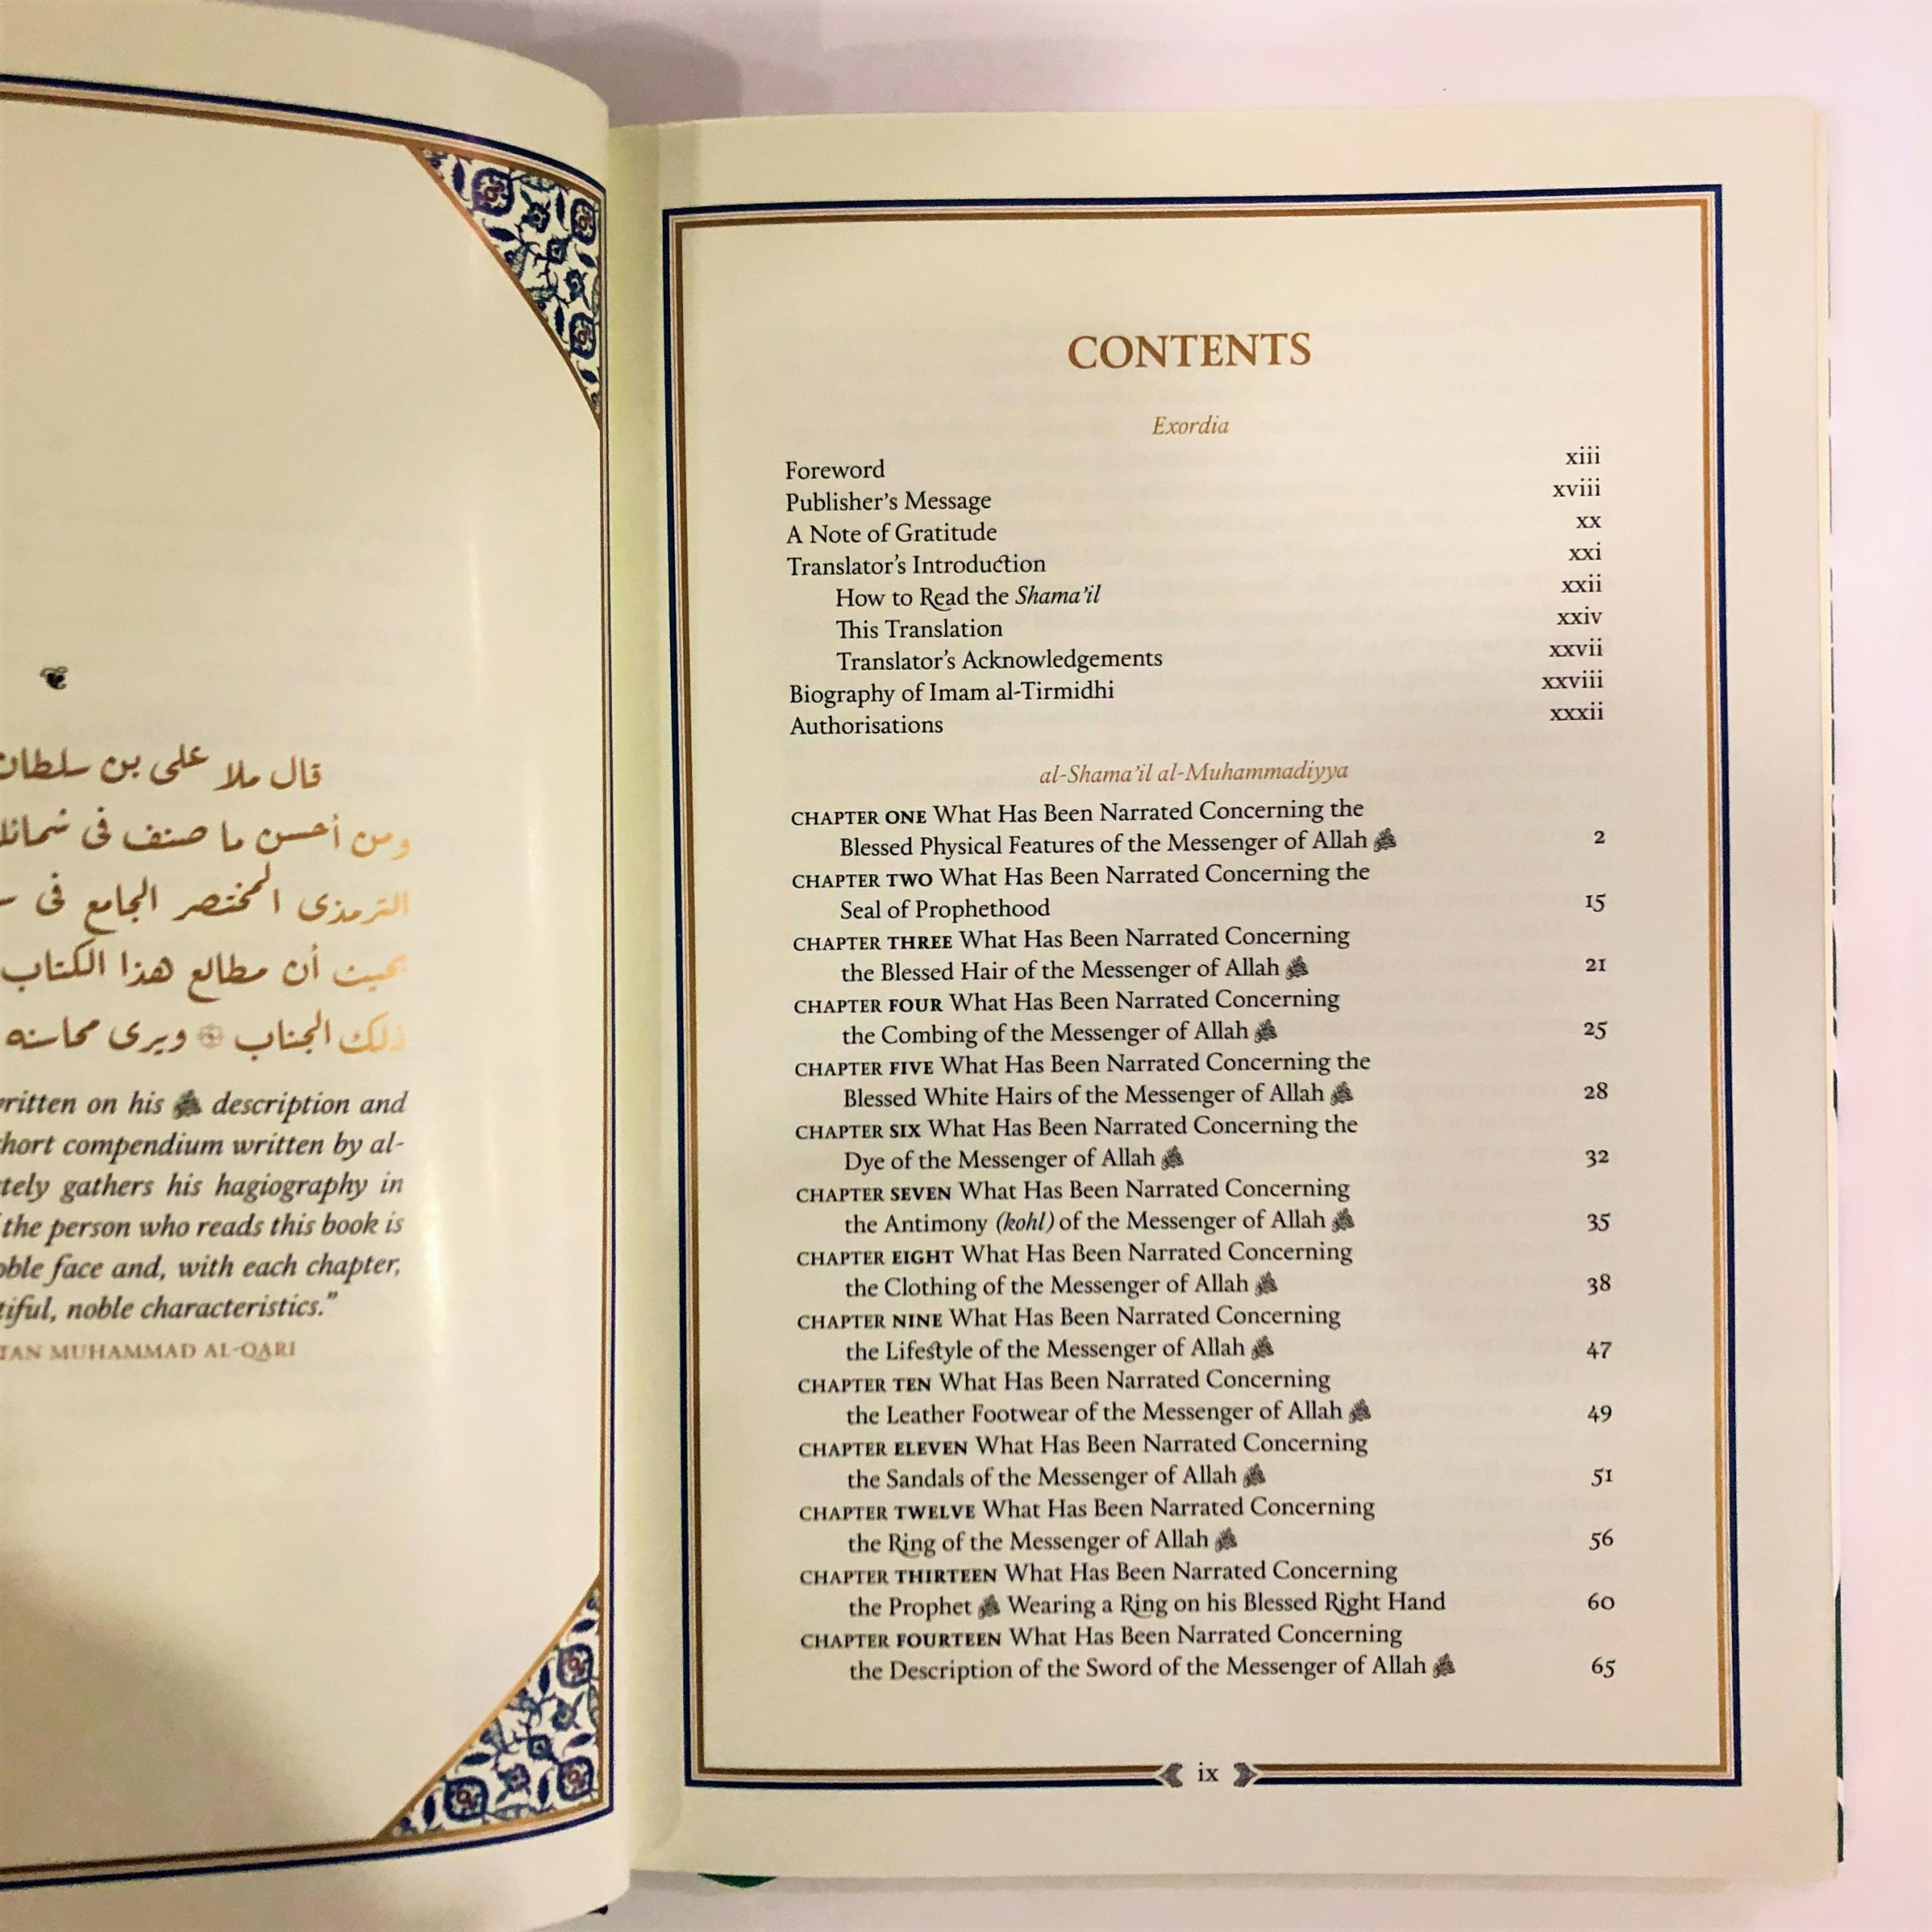 قال ملا على بن سلطان
ومن أحسن ما صنف فى شمائله
الترمذى المختصر الجامع فى
بحيث أن مطالع هذا الكتاب
ذلك الجناب ويرى محاسنه
written on his ﷺ description and
short compendium written by al-
gathers his hagiography in
the person who reads this book is
noble face and, with each chapter,
noble characteristics.”
MUHAMMAD AL-QARI
CONTENTS
Exordia
Foreword xiii
Publisher’s Message xviii
A Note of Gratitude xx
Translator’s Introduction xxi
How to Read the Shama’il xxii
This Translation xxiv
Translator’s Acknowledgements xxvii
Biography of Imam al-Tirmidhi xxviii
Authorisations xxxii
al-Shama’il al-Muhammadiyya
CHAPTER ONE What Has Been Narrated Concerning the
Blessed Physical Features of the Messenger of Allah ﷺ 2
CHAPTER TWO What Has Been Narrated Concerning the
Seal of Prophethood 15
CHAPTER THREE What Has Been Narrated Concerning
the Blessed Hair of the Messenger of Allah ﷺ 21
CHAPTER FOUR What Has Been Narrated Concerning
the Combing of the Messenger of Allah ﷺ 25
CHAPTER FIVE What Has Been Narrated Concerning the
Blessed White Hairs of the Messenger of Allah ﷺ 28
CHAPTER SIX What Has Been Narrated Concerning the
Dye of the Messenger of Allah ﷺ 32
CHAPTER SEVEN What Has Been Narrated Concerning
the Antimony (kohl) of the Messenger of Allah ﷺ 35
CHAPTER EIGHT What Has Been Narrated Concerning
the Clothing of the Messenger of Allah ﷺ 38
CHAPTER NINE What Has Been Narrated Concerning
the Lifestyle of the Messenger of Allah ﷺ 47
CHAPTER TEN What Has Been Narrated Concerning
the Leather Footwear of the Messenger of Allah ﷺ 49
CHAPTER ELEVEN What Has Been Narrated Concerning
the Sandals of the Messenger of Allah ﷺ 51
CHAPTER TWELVE What Has Been Narrated Concerning
the Ring of the Messenger of Allah ﷺ 56
CHAPTER THIRTEEN What Has Been Narrated Concerning
the Prophet ﷺ Wearing a Ring on his Blessed Right Hand 60
CHAPTER FOURTEEN What Has Been Narrated Concerning
the Description of the Sword of the Messenger of Allah ﷺ 65
ix